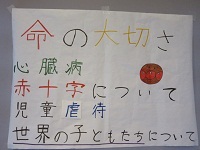 命の大切さ
心臓病
赤十字について
児童虐待
世界の子どもたちについて